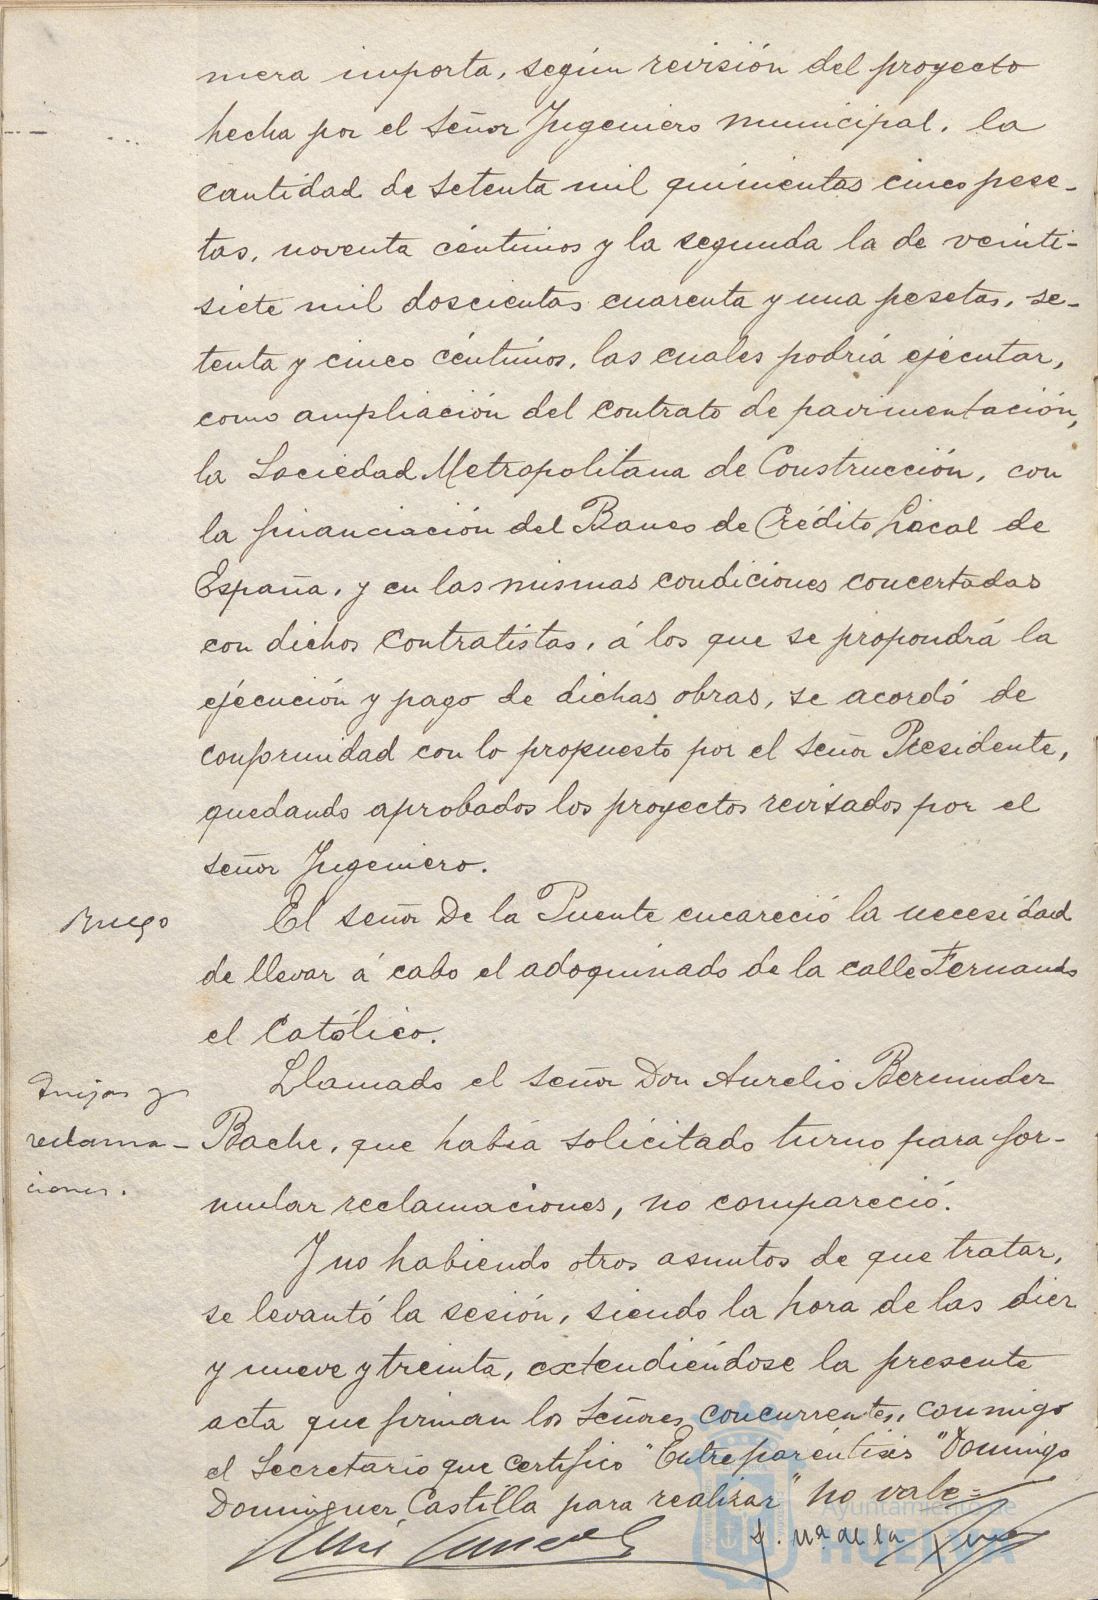 mera importa, según revisión del proyecto
hecha por el señor Ingeniero municipal, la
cantidad de setenta mil quinientas cinco pese-
tas, noventa céntimos y la segunda la de veinti-
siete mil doscientas cuarenta y una pesetas, se-
tenta y cinco céntimos, las cuales podría ejecutar,
como ampliación del contrato de pavimentación,
la Sociedad Metropolitana de Construcción, con
la financiación del Banco de Crédito Local de
España, y en las mismas condiciones concertadas
con dichos contratistas, á los que se propondrá la
ejecución y pago de dichas obras, se acordó de
conformidad con lo propuesto por el señor Presidente,
quedando aprobados los proyectos revisados por el
señor Ingeniero.
Ruego
El señor De la Puente encareció la necesidad
de llevar á cabo el adoquinado de la calle Fernando
el Católico.
Quejas y
reclama-
ciones.
Llamado el señor Don Aurelio Bermudez
Bache, que había solicitado turno para for-
mular reclamaciones, no compareció.
Y no habiendo otros asuntos de que tratar,
se levantó la sesión, siendo la hora de las diez
y nueve y treinta, extendiéndose la presente
acta que firman los señores concurrentes, conmigo
el Secretario que certifico "Entreparéntisis "Domingo
Dominguez Castilla para realizar" no vale=
J. Mª. de la
Ayuntamiento de
HUELVA